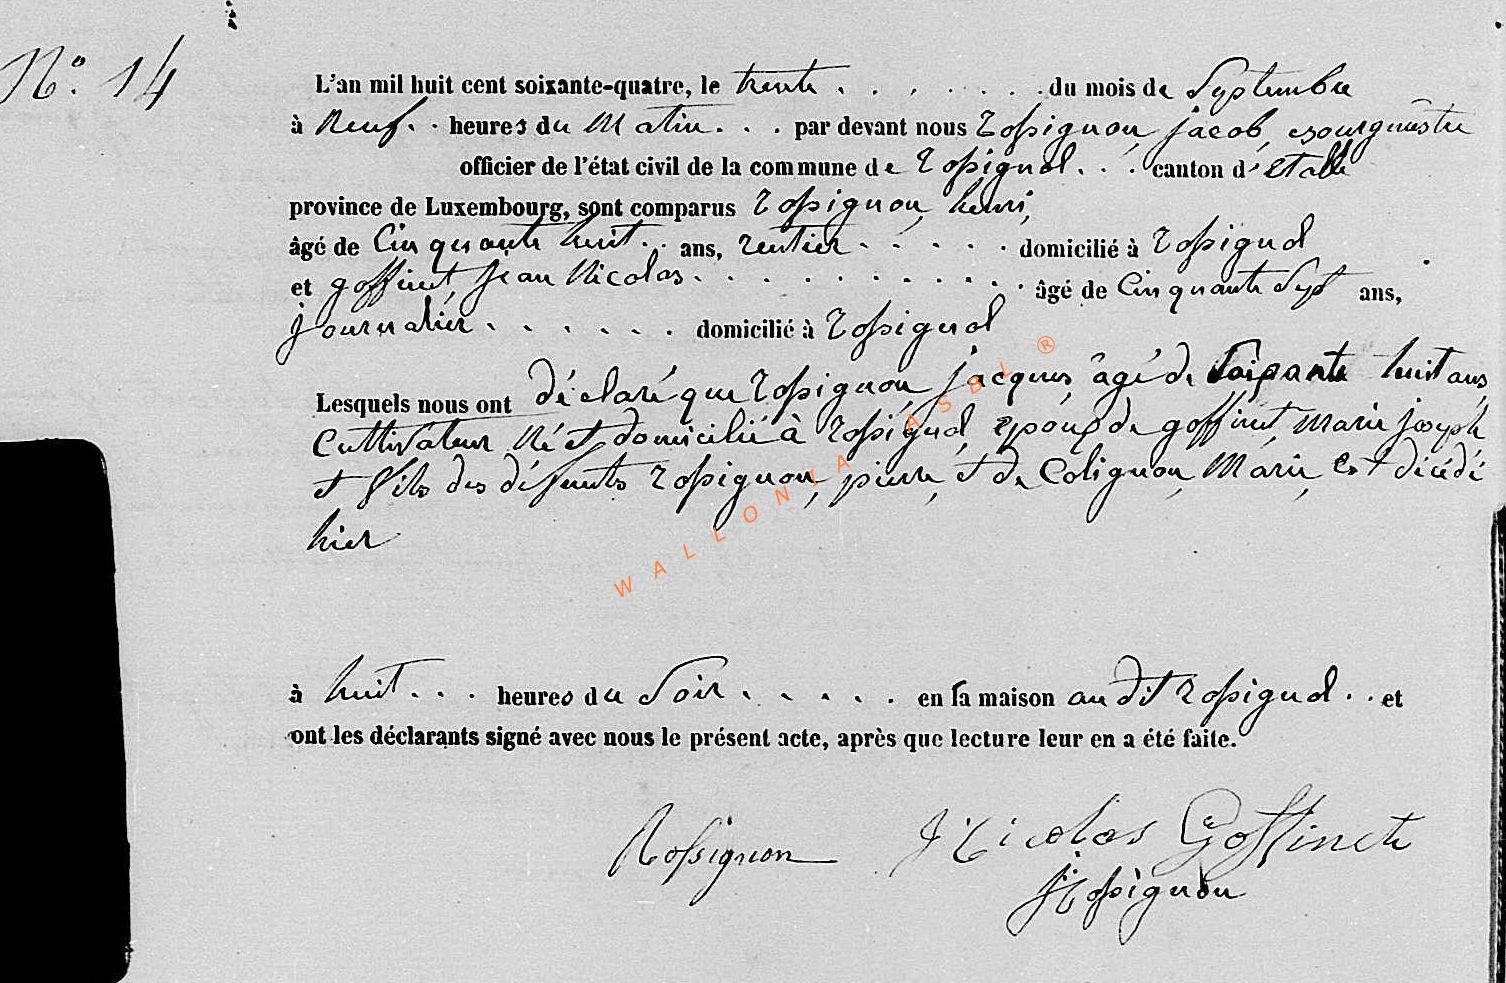 N° 14
L'an mil huit cent soixante-quatre, le trente . . . . . . . du mois de Septembre
à neuf . . heures du matin . . . par devant nous Rossignon, jacob, bourgmestre
officier de l'état civil de la commune de Rossignol . . . canton d'étalle
province de Luxembourg, sont comparus Rossignon, henri,
âgé de Cinquante huit . . ans, rentier . . . . . domicilié à Rossignol
et goffinet, jean Nicolas . . . . . . . . . . âgé de Cinquante Sept ans,
journalier . . . . . . domicilié à Rossignol
Lesquels nous ont déclaré que Rossignon, jacques, âgé de Soixante huit ans,
Cultivateur né et domicilié à Rossignol, époux de goffinet, Marie joseph
et fils des défunts Rossignon, pierre, et de Colignon, Marie, est décédé
hier
à huit . . . heures du Soir . . . . . en sa maison au dit Rossignol . . et
ont les déclarants signé avec nous le présent acte, après que lecture leur en a été faite.
Rossignon JNicolas Goffinet
JRossignon
WALLONIA ASBL ®